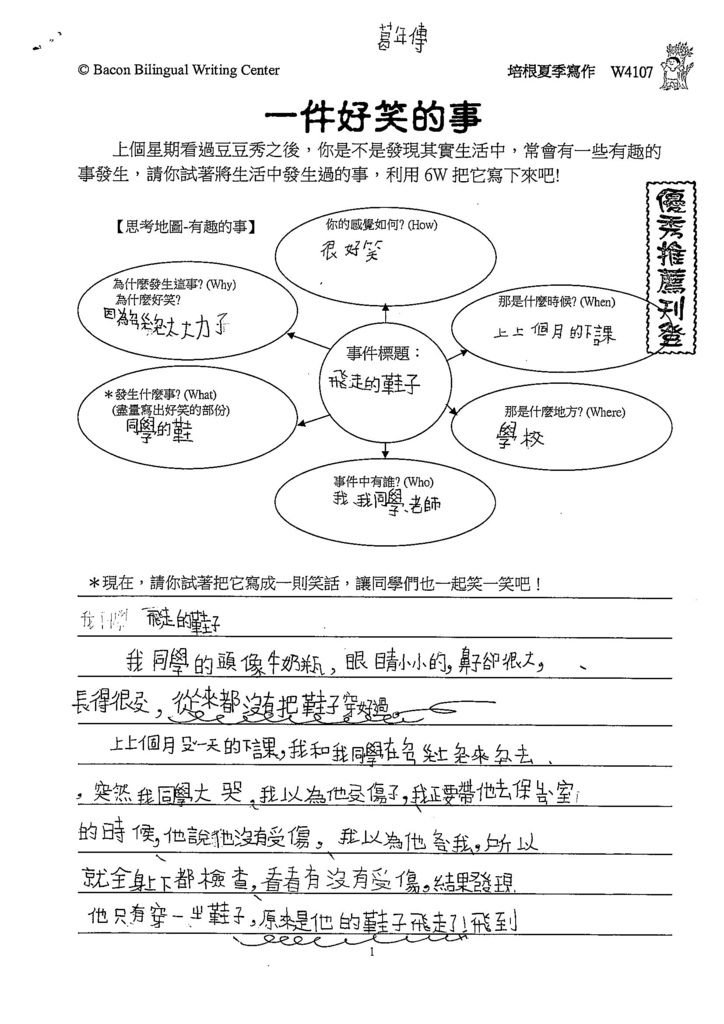 葛年傳
© Bacon Bilingual Writing Center
培根夏季寫作 W4107
一件好笑的事
上個星期看過豆豆秀之後，你是不是發現其實生活中，常會有一些有趣的
事發生，請你試著將生活中發生過的事，利用 6W 把它寫下來吧!
優秀推薦刊登
【思考地圖-有趣的事】
你的感覺如何? (How)
很好笑
為什麼發生這事? (Why)
為什麼好笑?
因為 太大力了
那是什麼時候? (When)
上上個月的下課
事件標題：
飛走的鞋子
＊發生什麼事? (What)
(盡量寫出好笑的部份)
同學的鞋
那是什麼地方? (Where)
學校
事件中有誰? (Who)
我、我同學、老師
＊現在，請你試著把它寫成一則笑話，讓同學們也一起笑一笑吧！
我同學 飛走的鞋子
我同學的頭像牛奶瓶，眼睛小小的，鼻子卻很大，
長得很 ，從來都沒有把鞋子穿好過。
上上個月 一天的下課，我和我同學在 來 去
，突然我同學大哭，我以為他受傷了，我正要帶他去保告室
的時候，他說他沒有受傷，我以為他 我，所以
就全身上下都檢查，看看有沒有受傷，結果發現
他只有穿一 鞋子，原來是他的鞋子飛走了！飛到
1